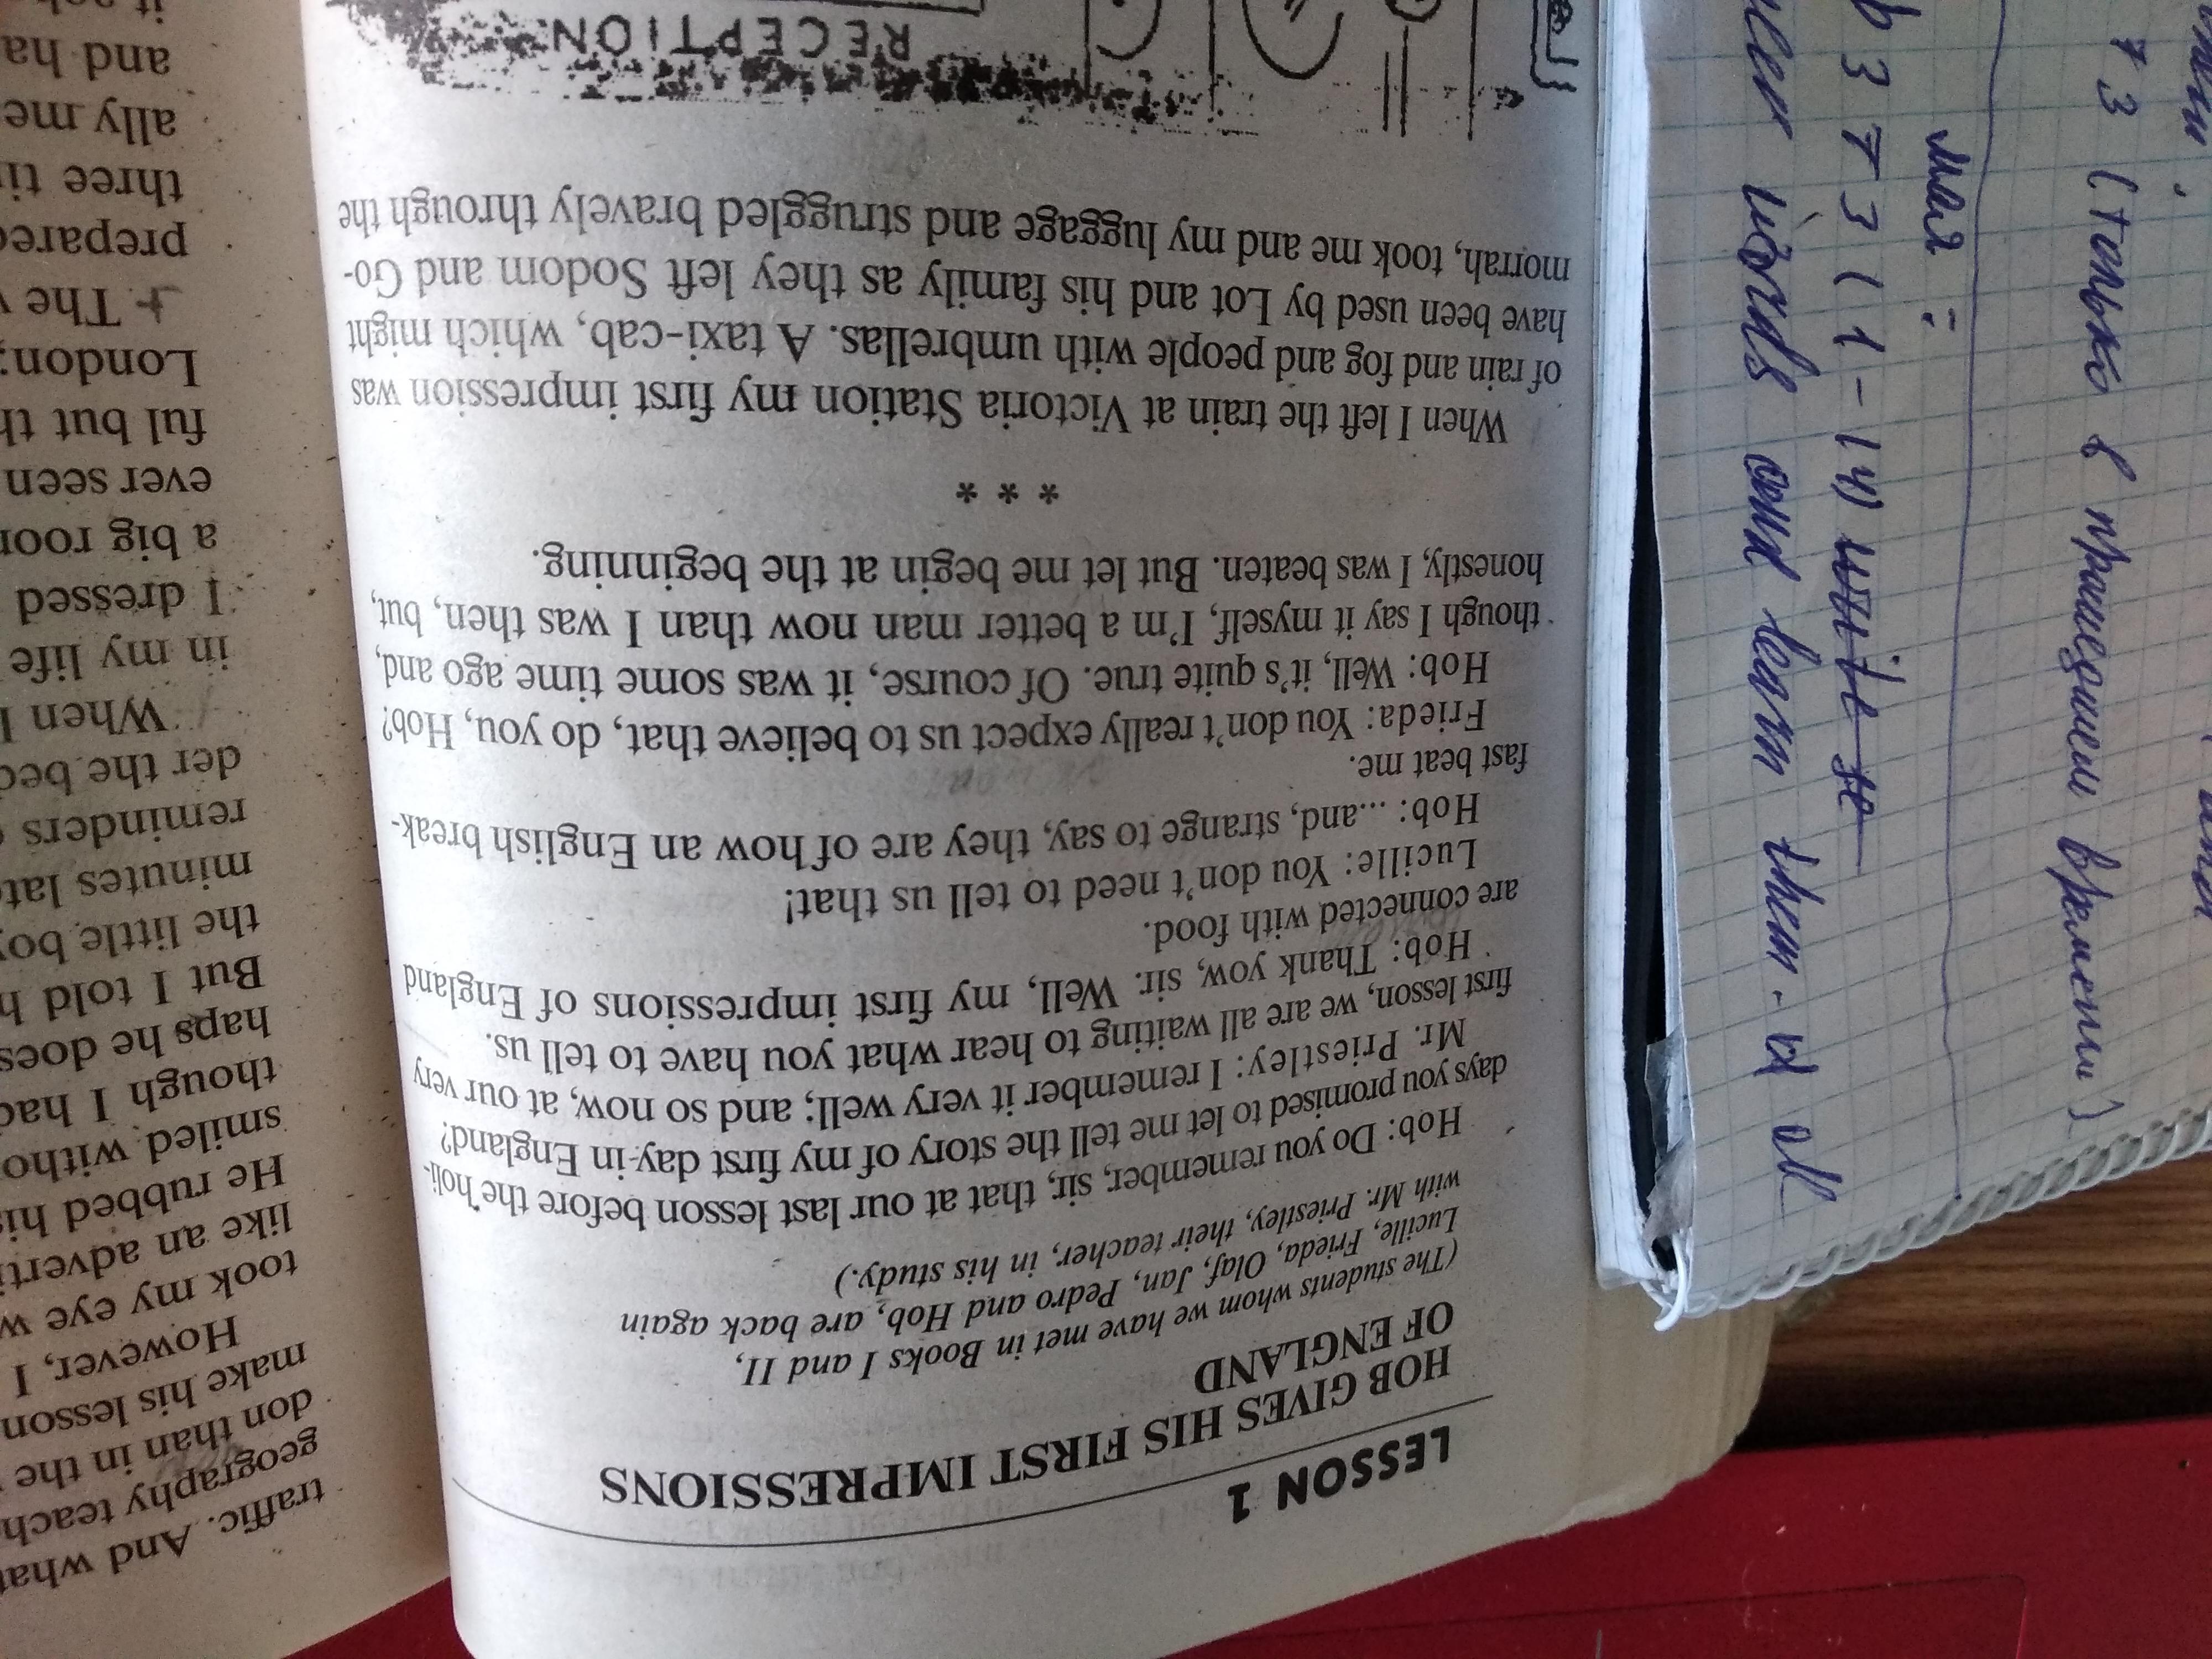 LESSON 1
HOB GIVES HIS FIRST IMPRESSIONS
OF ENGLAND
(The students whom we have met in Books I and II,
Lucille, Frieda, Olaf, Jan, Pedro and Hob, are back again
with Mr. Priestley, their teacher, in his study.)
Hob: Do you remember, sir, that at our last lesson before the holi-
days you promised to let me tell the story of my first day in England?
Mr. Priestley: I remember it very well; and so now, at our very
first lesson, we are all waiting to hear what you have to tell us.
Hob: Thank yow, sir. Well, my first impressions of England
are connected with food.
Lucille: You don't need to tell us that!
Hob: ...and, strange to say, they are of how an English break-
fast beat me.
Frieda: You don't really expect us to believe that, do you, Hob?
Hob: Well, it's quite true. Of course, it was some time ago and,
though I say it myself, I'm a better man now than I was then, but,
honestly, I was beaten. But let me begin at the beginning.
* * *
When I left the train at Victoria Station my first impression was
of rain and fog and people with umbrellas. A taxi-cab, which might
have been used by Lot and his family as they left Sodom and Go-
morrah, took me and my luggage and struggled bravely through the
RECEPTION
traffic. And what
geography teach
don than in the
make his lesson
However, I
took my eye w
like an adverti
He rubbed his
smiled witho
though I had
haps he does
But I told h
the little boy
minutes late
reminders
der the bed
When I
in my life
I dressed
a big room
ever seen
ful but th
London;
The
prepared
three ti
ally me
and ha
3 т 3 (1-14)
words and learn them - и
мая:
т 3 (только в прошедшем времени)